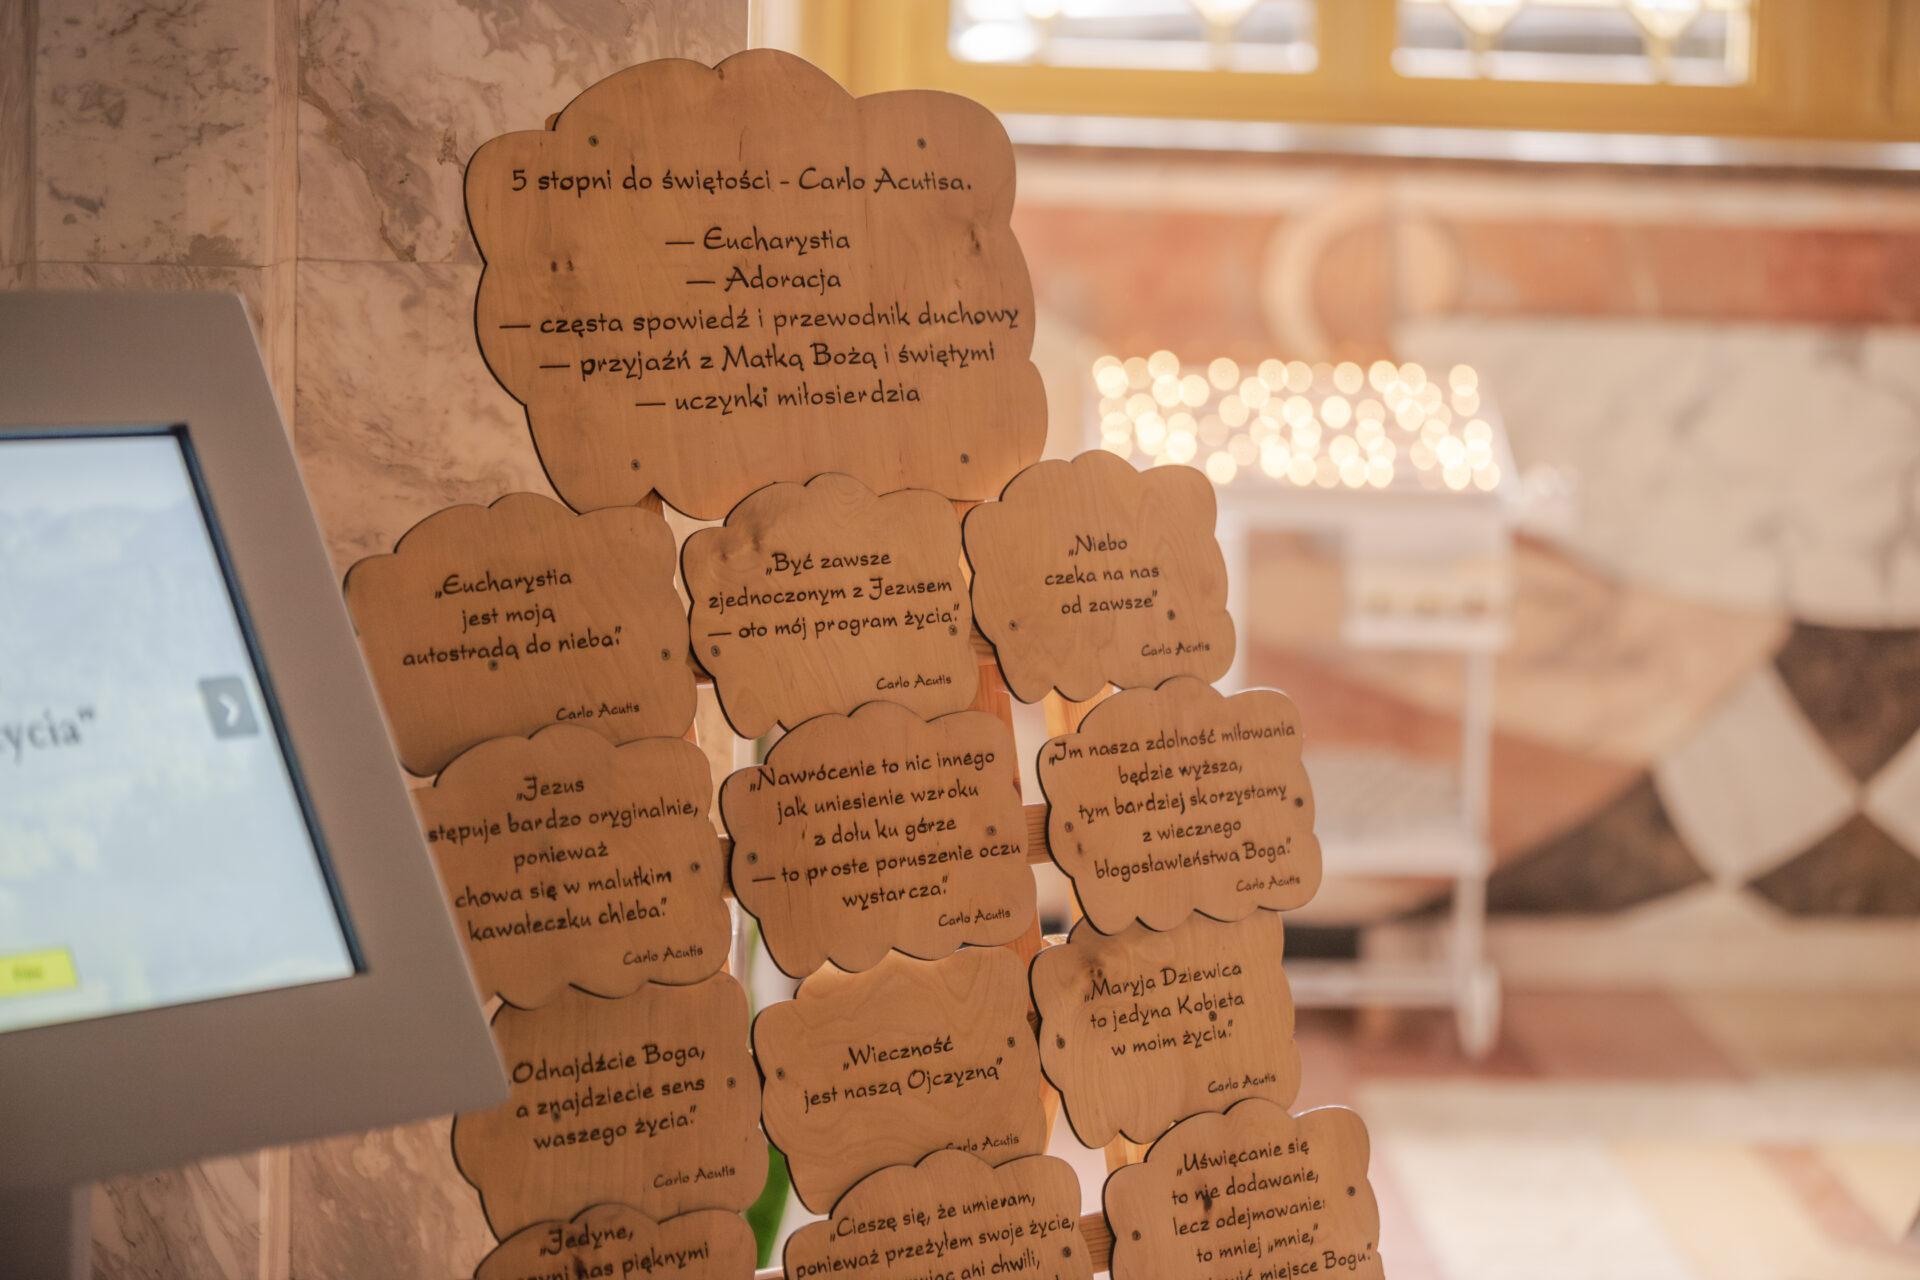 5 stopni do świętości - Carlo Acutisa.
— Eucharystia
— Adoracja
— częsta spowiedź i przewodnik duchowy
— przyjaźń z Matką Bożą i świętymi
— uczynki miłosierdzia
„Eucharystia
jest moją
autostradą do nieba."
Carlo Acutis
„Być zawsze
zjednoczonym z Jezusem
— oto mój program życia."
Carlo Acutis
„Niebo
czeka na nas
od zawsze"
Carlo Acutis
„Jezus
bardzo oryginalnie,
ponieważ
chowa się w malutkim
kawałeczku chleba."
Carlo Acutis
„Nawrócenie to nic innego
jak uniesienie wzroku
z dołu ku górze
— to proste poruszenie oczu
wystarcza."
Carlo Acutis
„Im nasza zdolność miłowania
będzie wyższa,
tym bardziej skorzystamy
z wiecznego
błogosławieństwa Boga."
Carlo Acutis
„Odnajdźcie Boga,
a znajdziecie sens
waszego życia."
Carlo Acutis
„Wieczność
jest naszą Ojczyzną"
Carlo Acutis
„Maryja Dziewica
to jedyna Kobieta
w moim życiu."
Carlo Acutis
„Jedyne,
nas pięknymi
„Cieszę się, że umieram,
ponieważ przeżyłem swoje życie,
ani chwili,
„Uświęcanie się
to nie dodawanie,
lecz odejmowanie:
to mniej „mnie,"
miejsce Bogu."